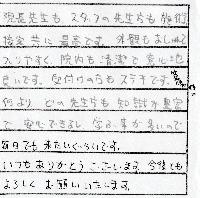 院長先生も スタッフの先生方も 施術
接客 共に 最高です。外観も おしゃれで
入りやすく、院内も 清潔で 居心地
良いです。受付の方も ステキです。笑顔が
何より どの先生方も 知識が豊富
で 安心できるし 学ぶ事が多いので
毎日でも 来たいくらいです。
いつも ありがとう ございます。今後とも
よろしく お願いいたします。